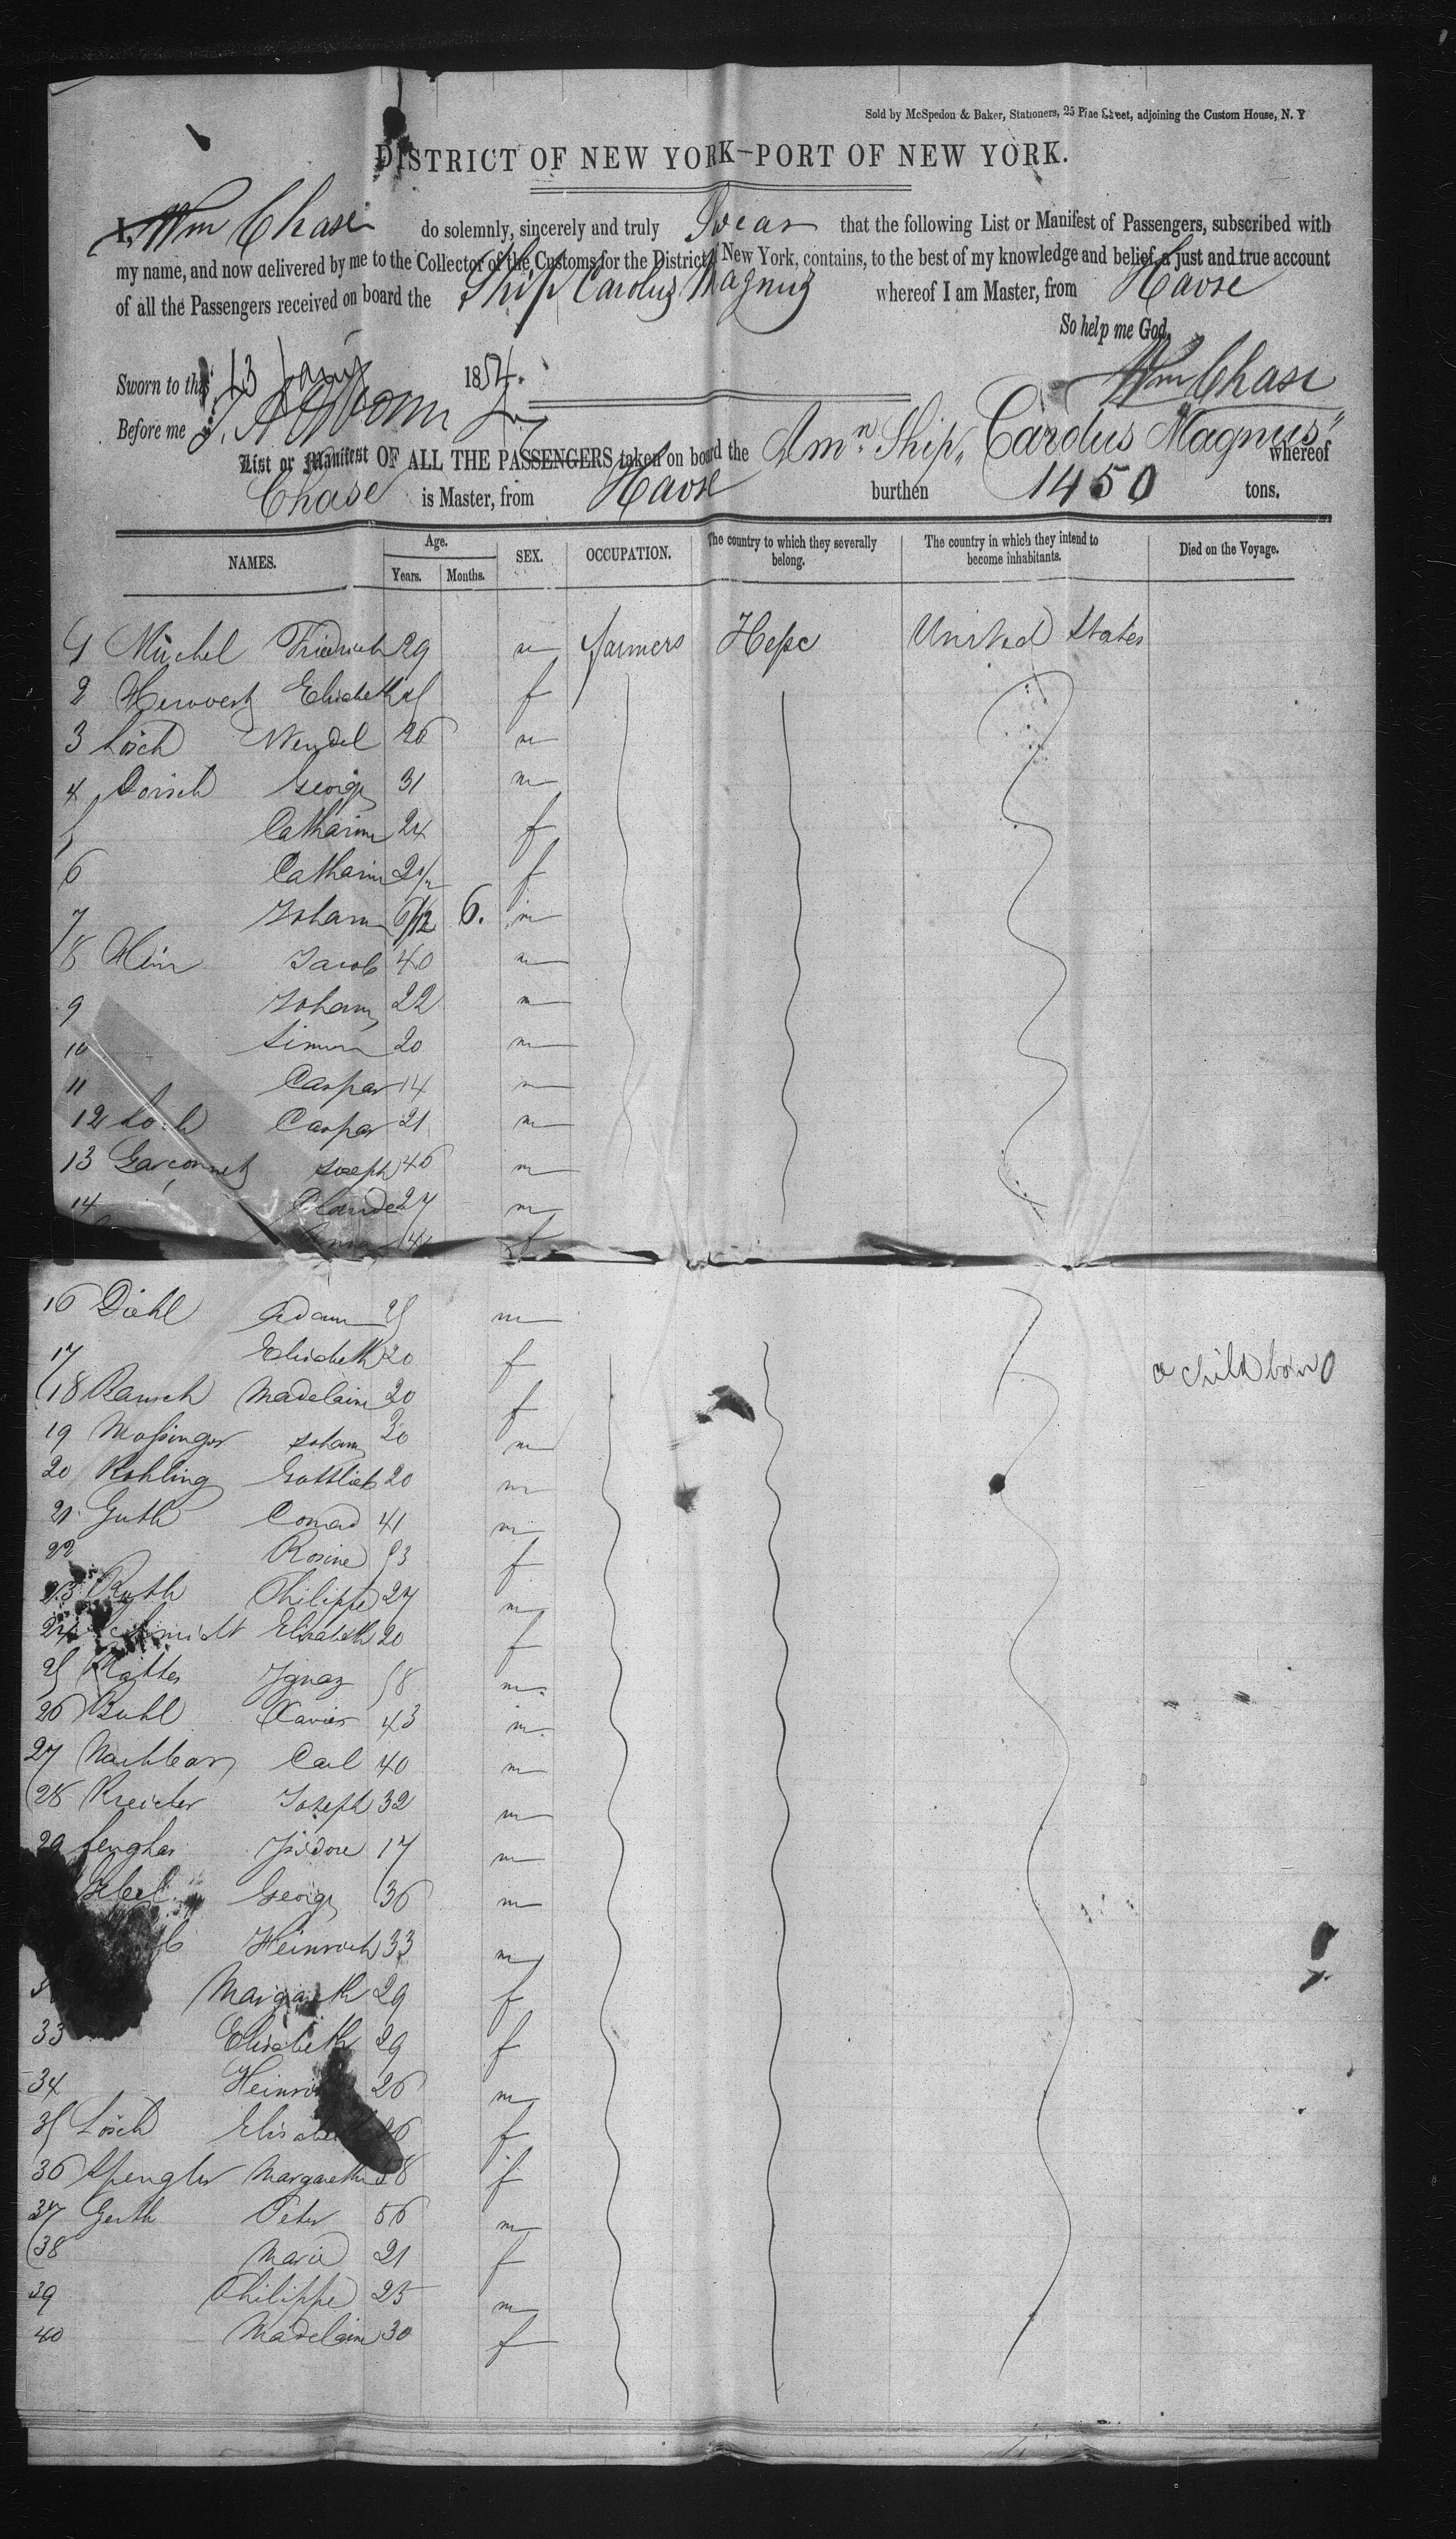 Sold by McSpedon & Baker, Stationers, 25 Pine Street, adjoining the Custom House, N. Y
DISTRICT OF NEW YORK-PORT OF NEW YORK.
I, Wm Chase do solemnly, sincerely and truly Swear that the following List or Manifest of Passengers, subscribed with
my name, and now delivered by me to the Collector of the Customs for the District of New York, contains, to the best of my knowledge and belief, a just and true account
of all the Passengers received on board the Ship Carolus Magnus whereof I am Master, from Havre
So help me God.
Sworn to this 13 Jany 1854. Wm Chase
Before me
List or Manifest OF ALL THE PASSENGERS taken on board the Amn. Ship "Carolus Magnus" whereof
Chase is Master, from Havre burthen 1450 tons.
NAMES. Age. Years. Months. SEX. OCCUPATION. The country to which they severally belong. The country in which they intend to become inhabitants. Died on the Voyage.
1 Michel Friedrich 29 m farmers Hesse United States
2 Elisabeth f
3 Losch Wendel 26 m
4 Dorsch Georg 31 m
5 Catharine 24 f
6 Catharine 2 1/2 f
7 Johann 6/12 6. m
8 Hein Jacob 40 m
9 Johann 22 m
10 Simon 20 m
11 Caspar 14 m
12 Caspar 21 m
13 Garconnet Joseph 46 m
14 Claude 27 m
14 f
16 Diehl Adam 25 m
17 Elisabeth 20 f a child born
18 Rausch Madelaine 20 f
19 Massinger Johann 20 m
20 Kohling Gottlieb 20 m
21 Guth Conrad 41 m
22 Rosine 53 f
23 Ruth Philippe 27 m
24 Schmidt Elisabeth 20 f
25 Matter Ignaz 58 m
26 Buhl Xavier 43 m
27 Nachbar Carl 40 m
28 Kreicher Joseph 32 m
29 Isidore 17 m
Georg 36 m
Heinrich 33 m
Margareth 29 f
33 Elisabeth 29 f
34 Heinrich 26 m
35 Losch Elisabeth 26 f
36 Spengler Margareth 38 f
37 Gerth Peter 56 m
38 Marie 21 f
39 Philippe 25 m
40 Madelaine 30 f